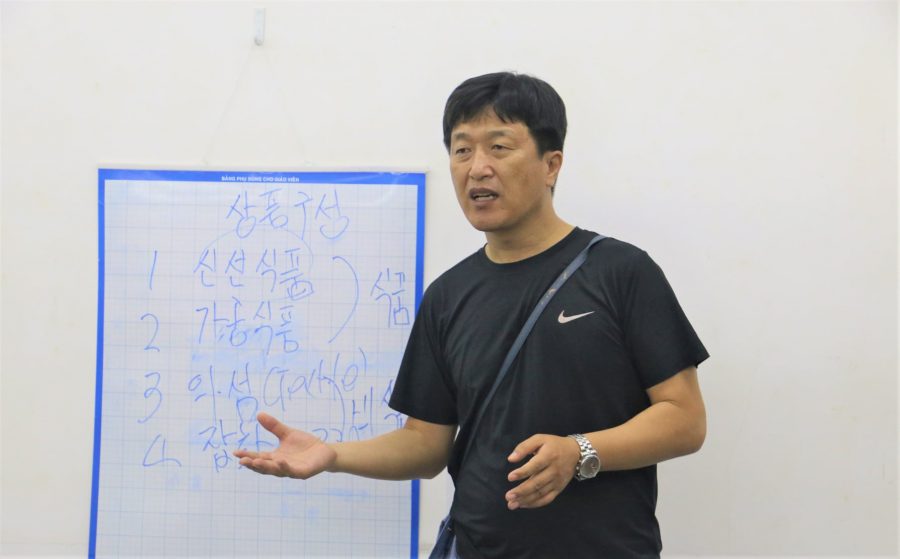 BẢNG PHỤ DÙNG CHO GIÁO VIÊN
상품구성
1 신선식품
2 가공식품
식품
3 의·섬
4 잡화